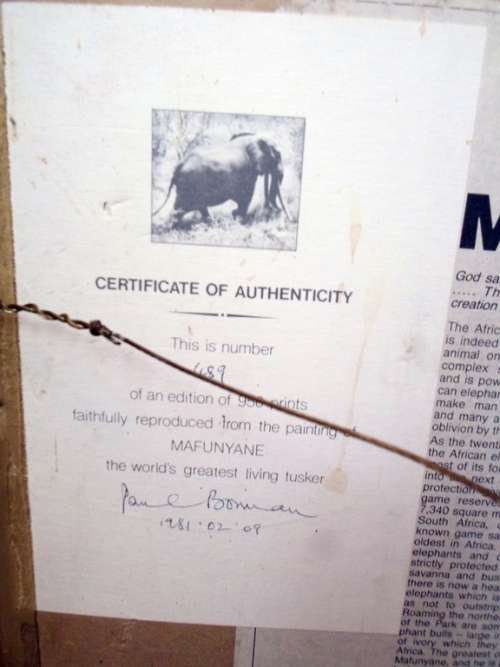 CERTIFICATE OF AUTHENTICITY
This is number
489
of an edition of 950 prints
faithfully reproduced from the painting of
MAFUNYANE
the world's greatest living tusker
Paul Bosman
1981·02·09
M
God sa
..... Th
creation
The Afric
is indeed
animal on
complex s
and is pow
can elephan
make man
and many a
oblivion by th
As the twent
the African el
most of its fo
into the next
protection
game reserve
7,340 square m
South Africa,
known game sa
oldest in Africa.
elephants and
strictly protected
savanna and bus
there is now a hea
elephants which is
as not to outstrip
Roaming the northe
of the Park are som
phant bulls – large
of ivory which they
Africa. The greatest o
Mafunyane, and his